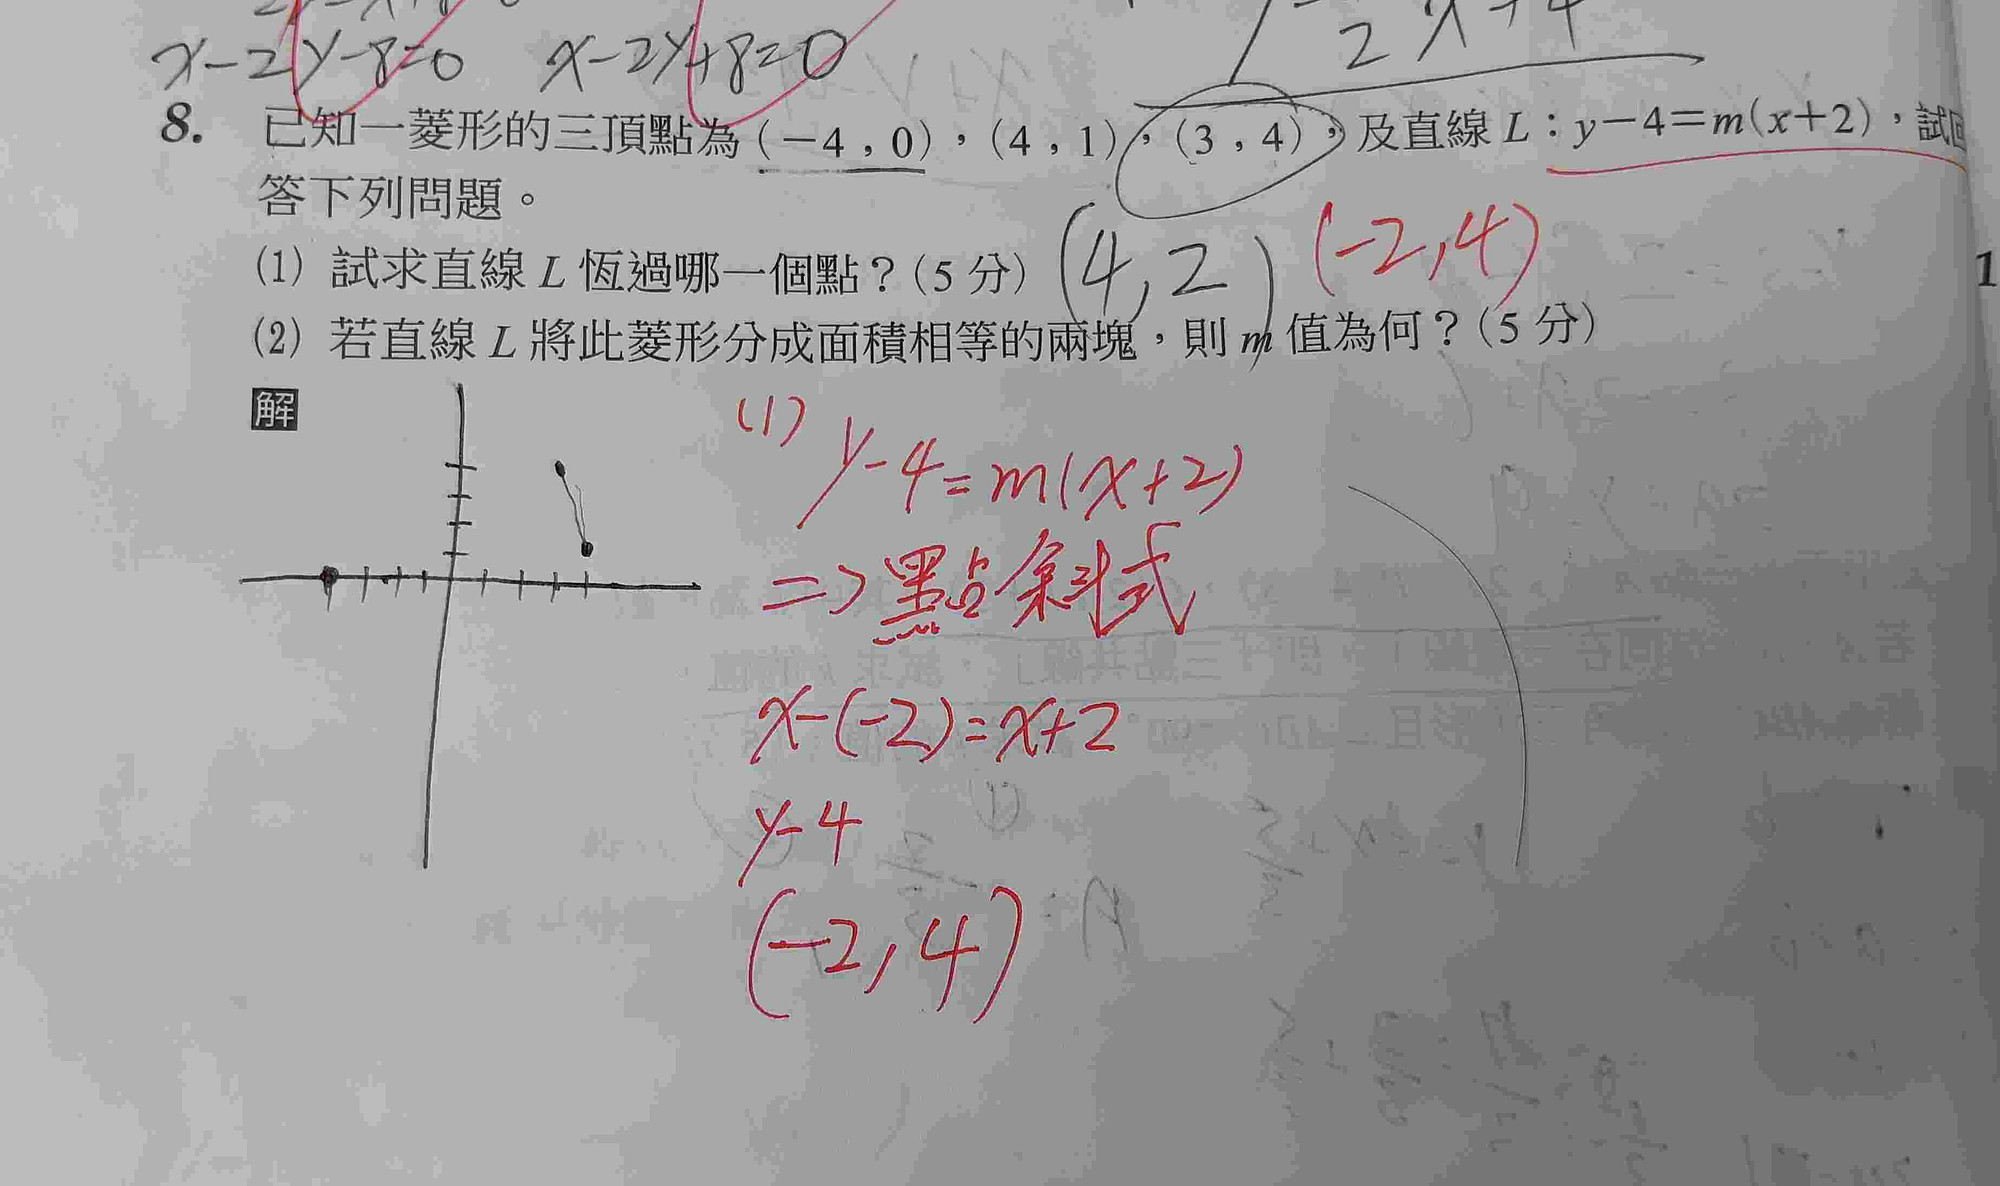 x-2y-8=0 x-2y+8=0
2 x+4
8. 已知一菱形的三頂點為(-4,0),(4,1),(3,4),及直線L:y-4=m(x+2),試回
答下列問題。
(1) 試求直線L恆過哪一個點?(5分) (4,2) (-2,4)
(2) 若直線L將此菱形分成面積相等的兩塊,則m值為何?(5分)
解
(1) y-4=m(x+2)
=>點斜式
x-(-2)=x+2
y-4
(-2,4)
1